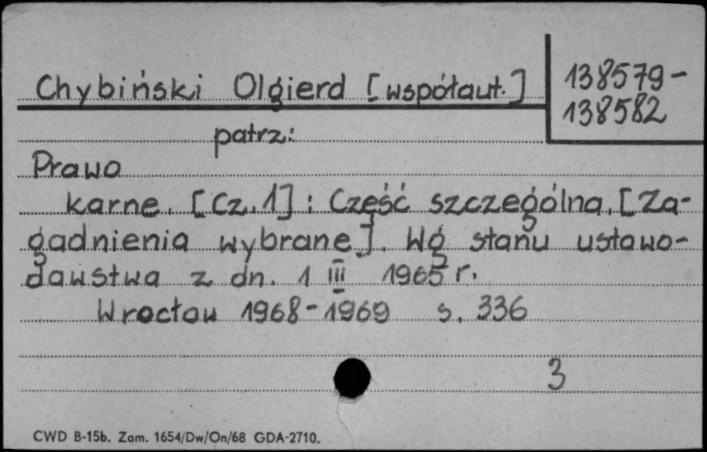 Chybiński Olgierd [współaut.]
138579-
138582
patrz:
Prawo
karne. [Cz. 1] : Część szczególna. [Za-
gadnienia wybrane]. Wg stanu ustawo-
dawstwa z dn. 1 III 1965 r.
Wrocław 1968-1969 s. 336
3
CWD B-15b. Zam. 1654/Dw/On/68 GDA-2710.